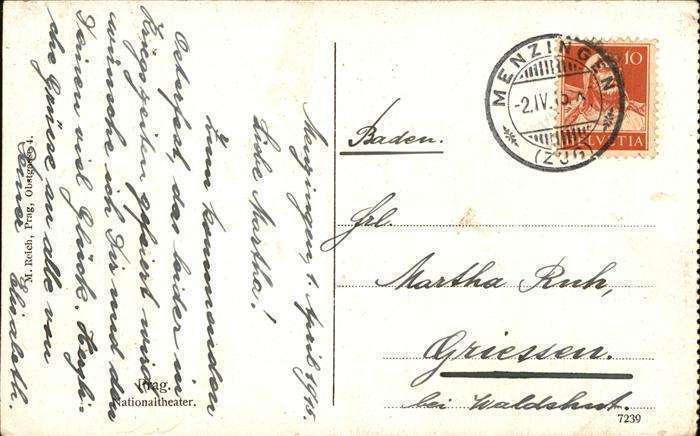 Menzingen, 1. April 1915.
Liebe Martha!
Zum kommenden
Osterfest, das leider in
Kriegszeiten gefeiert wird
wünsche ich Dir und den
Deinen viel Glück. Herzli-
che Grüsse an alle von
Deiner Elisabeth.
M. Reich, Prag, Obstgasse 4.
Prag.
Nationaltheater.
MENZINGEN
-2.IV.15.
(ZUG)
10
HELVETIA
Baden.
Frl.
Martha Ruh,
Griessen.
bei Waldshut.
7239